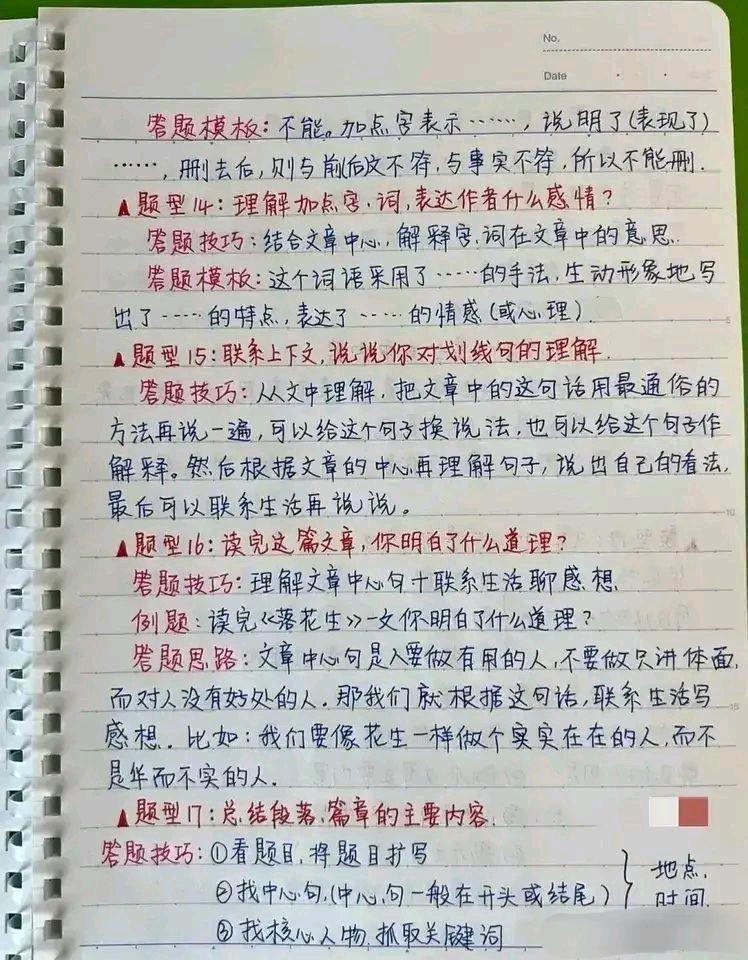 No.
Date
答题模板：不能。加点字表示……，说明了(表现了)
……，删去后，则与前后文不符，与事实不符，所以不能删.
▲题型14：理解加点字、词，表达作者什么感情？
答题技巧：结合文章中心，解释字、词在文章中的意思.
答题模板：这个词语采用了……的手法，生动形象地写
出了……的特点，表达了……的情感(或心理).
▲题型15：联系上下文，说说你对划线句的理解.
答题技巧：从文中理解，把文章中的这句话用最通俗的
方法再说一遍，可以给这个句子换说法，也可以给这个句子作
解释。然后根据文章的中心再理解句子，说出自己的看法，
最后可以联系生活再说说。
▲题型16：读完这篇文章，你明白了什么道理？
答题技巧：理解文章中心句+联系生活聊感想.
例题：读完《落花生》一文你明白了什么道理？
答题思路：文章中心句是人要做有用的人，不要做只讲体面，
而对人没有好处的人.那我们就根据这句话，联系生活写
感想.比如：我们要像花生一样做个实实在在的人，而不
是华而不实的人.
▲题型17：总结段落、篇章的主要内容.
答题技巧：①看题目，将题目扩写
②找中心句，(中心句一般在开头或结尾)
③找核心人物，抓取关键词
地点、
时间.